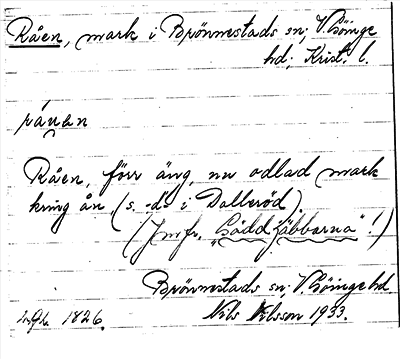 Råen, mark i Brönnestads sn; V. Göinge
hd; Krist. l.
råuən
Råen, förr äng, nu odlad mark
kring ån, (s. -do i Dalleröd).
(Jmfr. "Gäddgäbbarna"!)
Brönnestads sn; V. Göinge hd.
1826. Nils Nilsson 1933.